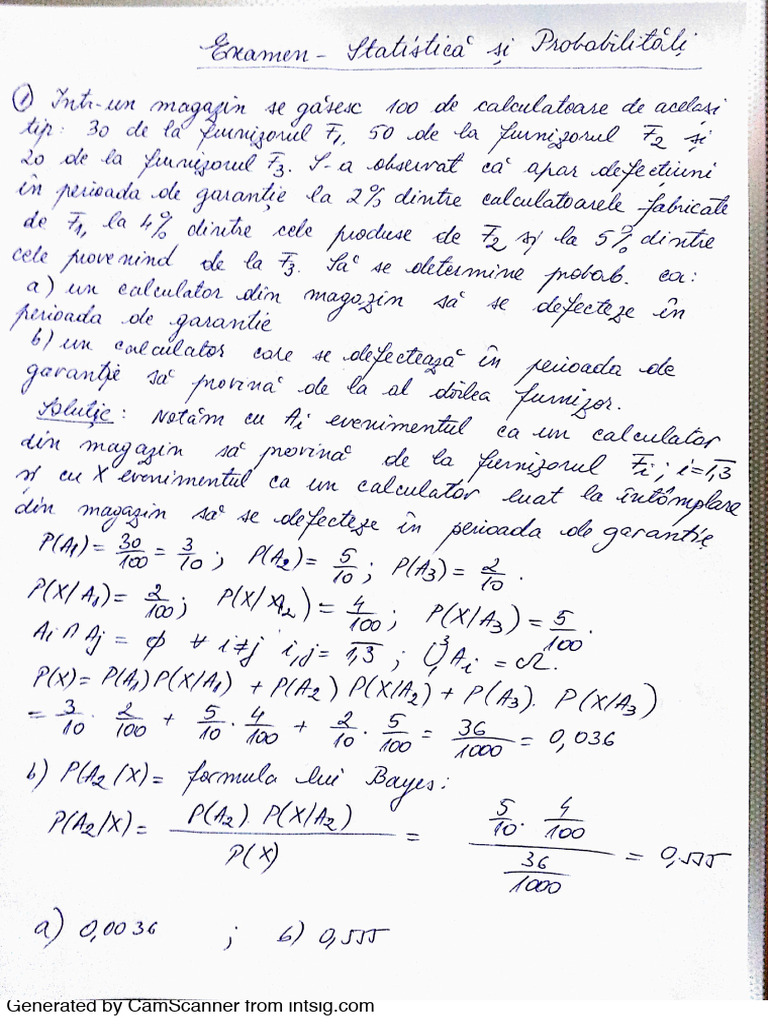 Examen - Statistică și Probabilități
① Într-un magazin se găsesc 100 de calculatoare de același
tip: 30 de la furnizorul F1, 50 de la furnizorul F2 și
20 de la furnizorul F3. S-a observat că apar defecțiuni
în perioada de garanție la 2% dintre calculatoarele fabricate
de F1, la 4% dintre cele produse de F2 și la 5% dintre
cele provenind de la F3. Să se determine probab. ca:
a) un calculator din magazin să se defecteze în
perioada de garantie
b) un calculator care se defectează în perioada de
garanție să provină de la al doilea furnizor.
Soluție: Notăm cu Ai evenimentul ca un calculator
din magazin să provină de la furnizorul Fi; i=1,3
și cu X evenimentul ca un calculator luat la întâmplare
din magazin să se defecteze în perioada de garanție
P(A1) = 30/100 = 3/10; P(A2) = 5/10; P(A3) = 2/10.
P(X/A1) = 2/100; P(X/A2) = 4/100; P(X/A3) = 5/100.
Ai ∩ Aj = ϕ ∀ i≠j i,j = 1,3; ⋃³₁ Ai = Ω.
P(X) = P(A1) P(X/A1) + P(A2) P(X/A2) + P(A3). P(X/A3)
= 3/10 · 2/100 + 5/10 · 4/100 + 2/10 · 5/100 = 36/1000 = 0,036
b) P(A2/X) = formula lui Bayes:
P(A2/X) = P(A2). P(X/A2) / P(X) = 5/10 · 4/100 / 36/1000 = 0,555
a) 0,0036 ; b) 0,555
Generated by CamScanner from intsig.com